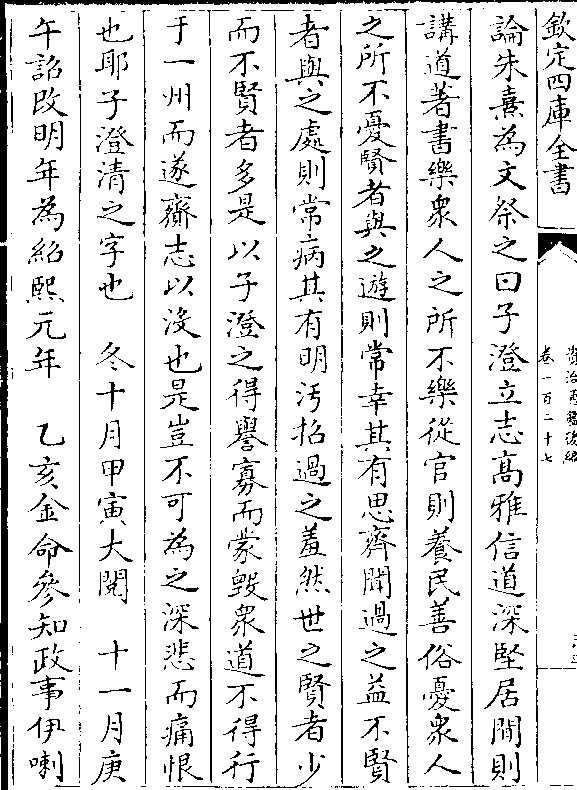 欽定四庫全書
資治通鑑後編
卷一百二十七
論朱熹為文祭之曰子澄立志高雅信道深堅居閒則
講道著書樂衆人之所不樂從官則養民善俗憂衆人
之所不憂賢者與之遊則常幸其有思齊聞過之益不賢
者與之處則常病其有明汚招過之羞然世之賢者少
而不賢者多是以子澄之得譽寡而蒙毀衆道不得行
于一州而遂齎志以沒也是豈不可為之深悲而痛恨
也耶子澄清之字也　冬十月甲寅大閱　十一月庚
午詔改明年為紹熙元年　乙亥金命參知政事伊喇